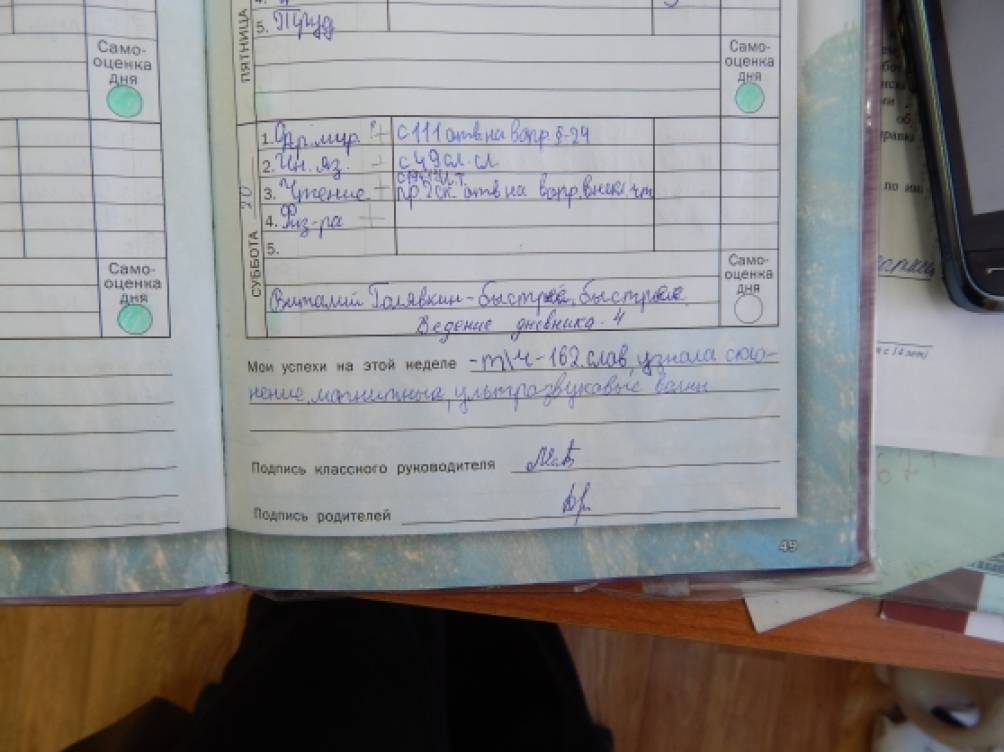 ПЯТНИЦА
5. Труд
Само-
оценка
дня
Само-
оценка
дня
СУББОТА
20
1. Окр. мир. + с 111 отв. на вопр. §-24
2. Ин. яз. - с 49 сл. сл.
3. Чтение + пр 2ск. отв на вопр.
4. Физ-ра +
5.
Само-
оценка
дня
Само-
оценка
дня
Виталий Голявкин - быстрей, быстрее.
Ведение дневника. 4
Мои успехи на этой неделе - т\ч - 162 слав, узнала скло-
нение, магнитные, ультразвуковые волны
Подпись классного руководителя
Подпись родителей
49
по
с 14 лет)